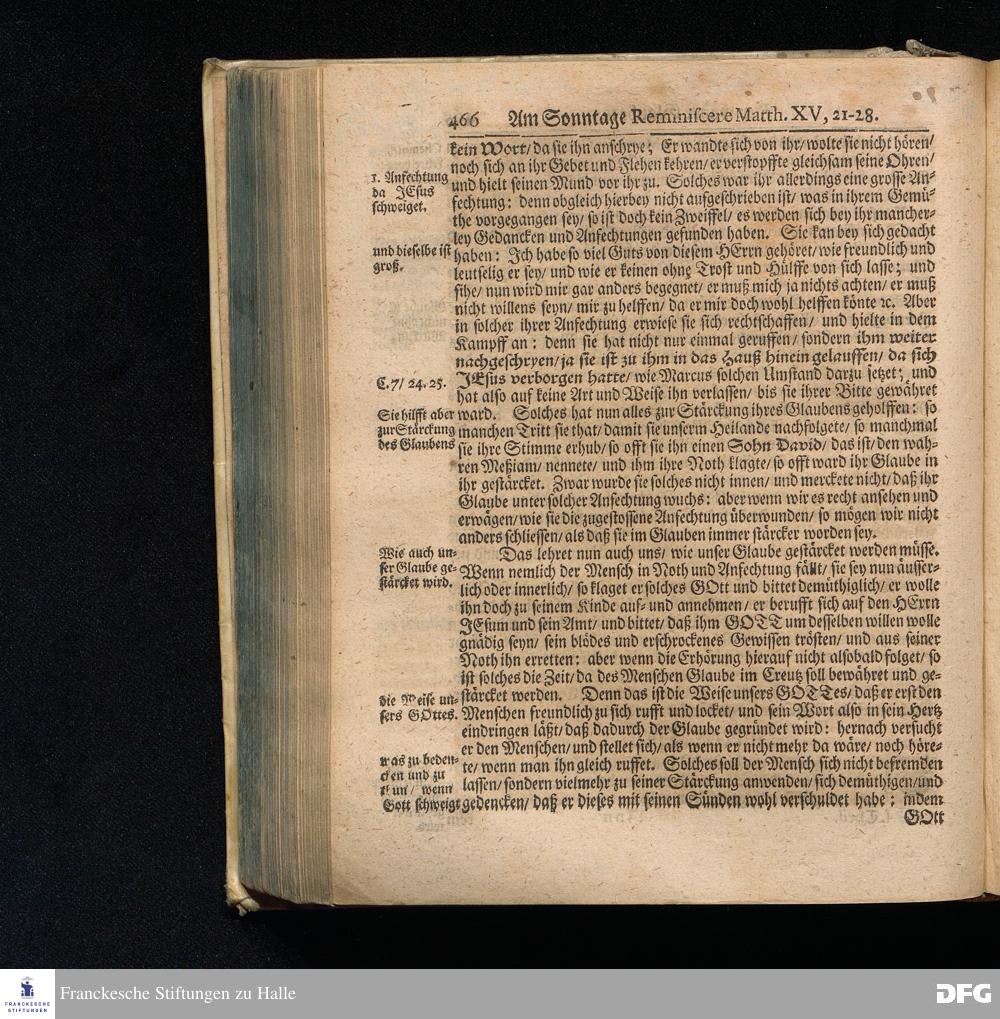 466 Am Sonntage Reminiscere Matth. XV, 21-28.
kein Wort/ da sie ihn anschrye; Er wandte sich von ihr/ wolte sie nicht hören/
noch sich an ihr Gebet und Flehen kehren/ er verstopffte gleichsam seine Ohren/
und hielt seinen Mund vor ihr zu. Solches war ihr allerdings eine grosse An-
fechtung: denn obgleich hierbey nicht aufgeschrieben ist/ was in ihrem Gemü-
the vorgegangen sey/ so ist doch kein Zweiffel/ es werden sich bey ihr mancher-
ley Gedancken und Anfechtungen gefunden haben. Sie kan bey sich gedacht
haben: Ich habe so viel Guts von diesem HErrn gehöret/ wie freundlich und
leutselig er sey/ und wie er keinen ohne Trost und Hülffe von sich lasse; und
sihe/ nun wird mir gar anders begegnet/ er muß mich ja nichts achten/ er muß
nicht willens seyn/ mir zu helffen/ da er mir doch wohl helffen könte ꝛc. Aber
in solcher ihrer Anfechtung erwiese sie sich rechtschaffen/ und hielte in dem
Kampff an: denn sie hat nicht nur einmal geruffen/ sondern ihm weiter
nachgeschryen/ ja sie ist zu ihm in das Hauß hinein gelauffen/ da sich
JEsus verborgen hatte/ wie Marcus solchen Umstand darzu setzet; und
hat also auf keine Art und Weise ihn verlassen/ bis sie ihrer Bitte gewähret
ward. Solches hat nun alles zur Stärckung ihres Glaubens geholffen: so
manchen Tritt sie that/ damit sie unserm Heilande nachfolgete/ so manchmal
sie ihre Stimme erhub/ so offt sie ihn einen Sohn David/ das ist/ den wah-
ren Meßiam/ nennete/ und ihm ihre Noth klagte/ so offt ward ihr Glaube in
ihr gestärcket. Zwar wurde sie solches nicht innen/ und merckete nicht/ daß ihr
Glaube unter solcher Anfechtung wuchs: aber wenn wir es recht ansehen und
erwägen/ wie sie die zugestossene Anfechtung überwunden/ so mögen wir nicht
anders schliessen/ als daß sie im Glauben immer stärcker worden sey.
Das lehret nun auch uns/ wie unser Glaube gestärcket werden müsse.
Wenn nemlich der Mensch in Noth und Anfechtung fällt/ sie sey nun äusser-
lich oder innerlich/ so klaget er solches GOtt und bittet demüthiglich/ er wolle
ihn doch zu seinem Kinde auf- und annehmen/ er berufft sich auf den HErrn
JEsum und sein Amt/ und bittet/ daß ihm GOTT um desselben willen wolle
gnädig seyn/ sein blödes und erschrockenes Gewissen trösten/ und aus seiner
Noth ihn erretten: aber wenn die Erhörung hierauf nicht alsobald folget/ so
ist solches die Zeit/ da des Menschen Glaube im Creutz soll bewähret und ge-
stärcket werden. Denn das ist die Weise unsers GOTTes/ daß er erst den
Menschen freundlich zu sich rufft und locket/ und sein Wort also in sein Hertz
eindringen läßt/ daß dadurch der Glaube gegründet wird: hernach versucht
er den Menschen/ und stellet sich/ als wenn er nicht mehr da wäre/ noch höre-
te/ wenn man ihn gleich ruffet. Solches soll der Mensch sich nicht befremden
lassen/ sondern vielmehr zu seiner Stärckung anwenden/ sich demüthigen/ und
gedencken/ daß er dieses mit seinen Sünden wohl verschuldet habe; indem
GOtt
1. Anfechtung
da JEsus
schweiget.
und dieselbe ist
groß.
C. 7/ 24. 25.
Sie hilfft aber
zur Stärckung
des Glaubens
Wie auch un-
ser Glaube ge-
stärcket wird.
die Weise un-
sers GOttes.
was zu beden-
cken und zu
thun/ wenn
Gott schweigt
Franckesche Stiftungen zu Halle
FRANCKESCHE
STIFTUNGEN
DFG